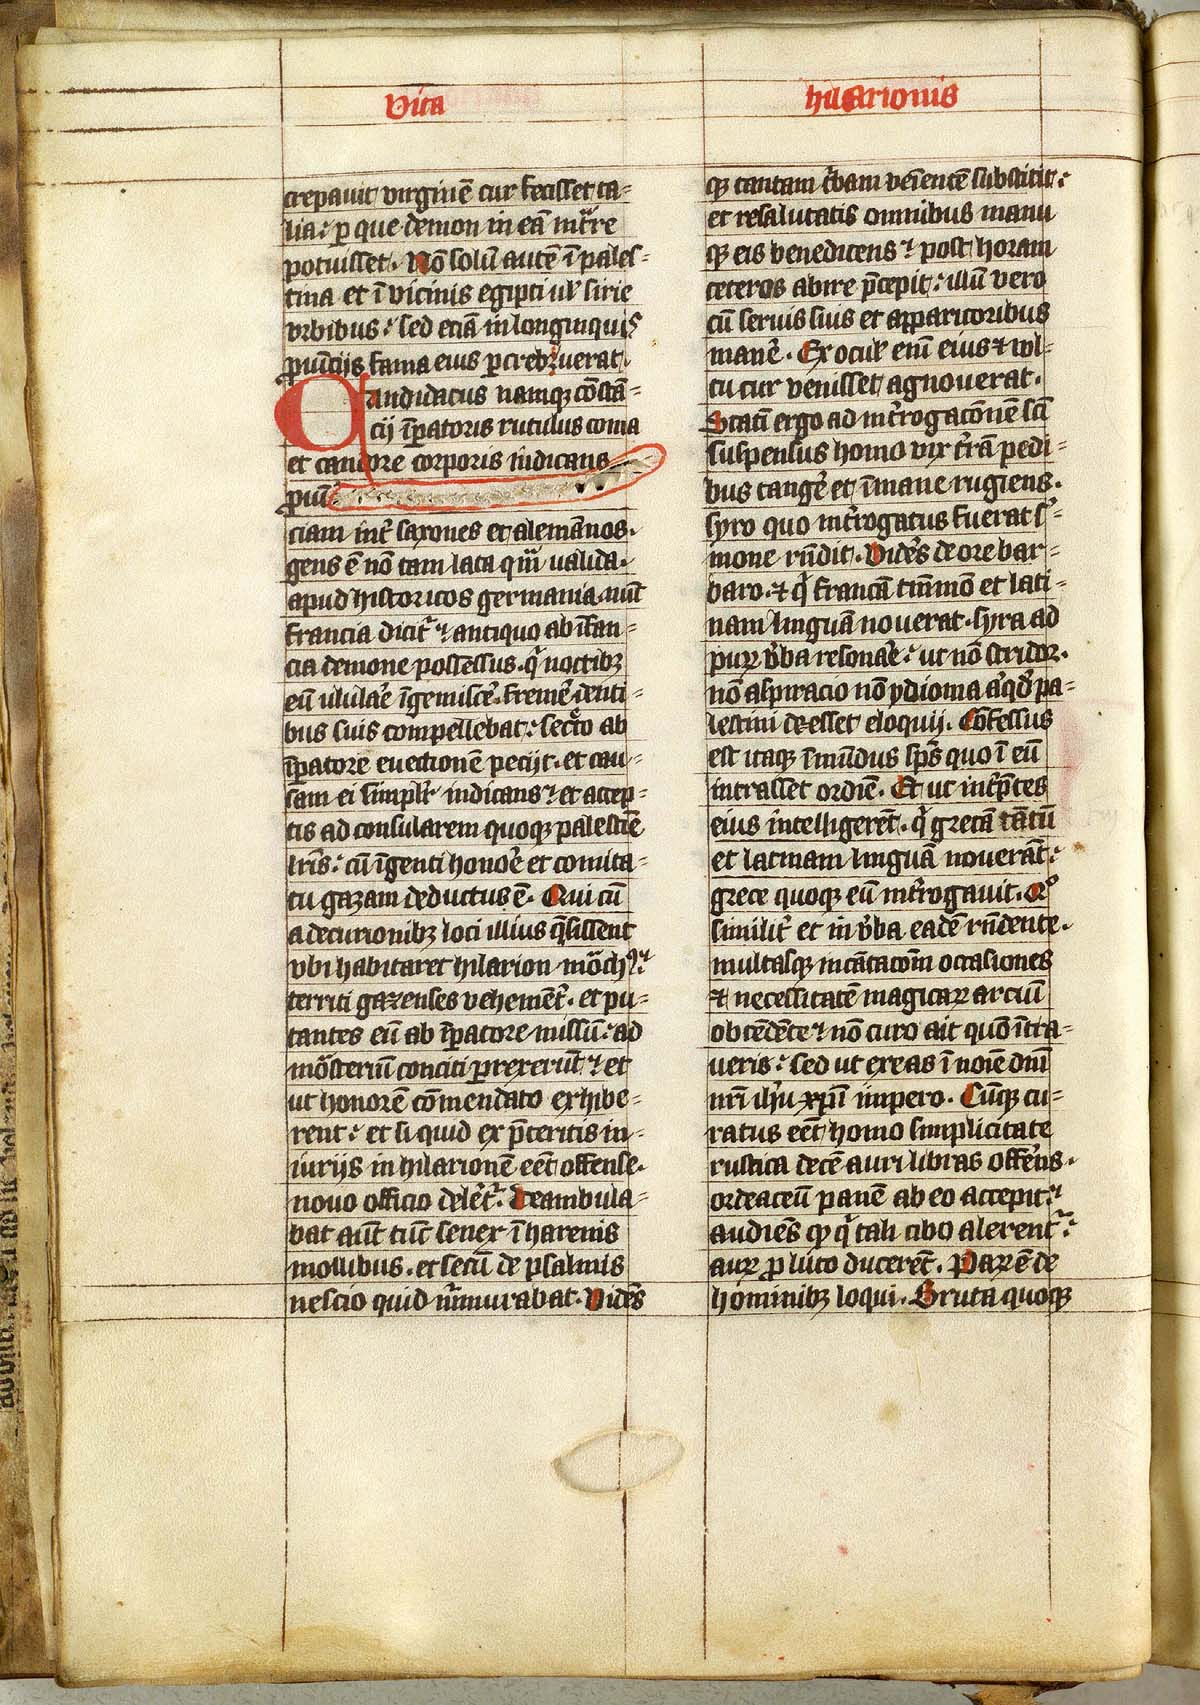 Vita
crepauit virginē cur fecisset ta=
lia: ꝑ que demon in eā int̄re
potuisset. Nō solū autē ī pales=
tina et ī vicinis egipti ul̓ sirie
vrbibus: sed etiā in longinquis
ꝓuīcijs fama eius ꝑcrebuerat.
Candidatus namqꝫ cōstā=
cij īꝑatoris rutulus coma
et candore corporis indicans
ꝓuī
ciam int̓ saxones et alemānos.
gens ē nō tam lata quā ualida.
apud historicos germania nūc
francia dicit᷑ ⁊ antiquo ab īfan=
cia demone possessus. qͥ noctibꝫ
eū ululāe īgemiscē. fremē denti=
bus suis compellebat: secͤto ab
īꝑatore euectionē pecijt. et cau=
sam ei simplr̄ indicans ⁊ et accep=
tis ad consularem quoqꝫ palestiē
lrīs: cū īgenti honoē et comita=
tu gazam deductus ē. Qui cū
a decurionibꝫ loci illius q̄sissent
vbi habitaret hilarion mōchꝰ:
territi gazenses vehemēt᷑. et pu=
tantes eū ab īꝑatore missū: ad
mōsteriū conciti ꝑrexerūt ⁊ et
ut honorē cōmendato exhibe=
rent: et si quid ex p̄teritis in=
iurijs in hilarionē eēt offense.
nouo officio delēt᷑. Deambula=
bat aūt tūc senex ī harenis
mollibus. et secū de psalmis
nescio quid murmurabat. Vidēs
hilarionis
qꝫ tantam t̓bam veīentē substitit:
et resalutatis omnibus manu
qꝫ eis benedicens ⁊ post horam
ceteros abire p̄cepit: illū vero
cū seruis suis et apparitoribus
manē. Ex ocul̓ enī eius ⁊ vul=
tu cur venisset agnouerat.
Statī ergo ad int̓rogacōnē scī
suspensus homo vix t̓rā pedi=
bus tangē et īmane rugiens.
syro quo int̓rogatus fuerat s̓=
mone rn̄dit. Vidēs de ore bar=
baro. ⁊ qͥ francā tm̄mō et lati=
nam linguā nouerat. syra ad
puꝝ v̓ba resonāe: ut nō stridor.
nō aspiracio nō ydioma aͥqd̓ pa=
lestini deesset eloquij. Cōfessus
est itaqꝫ īmūdus sp̄s quo ī eū
intrasset ordiē. Et ut int̓p̄tes
eius intelligerēt. qͥ grecā tātū
et latinam linguā nouerāt:
grece quoqꝫ eū int̓rogauit. Qͦ
similit̓ et in v̓ba eadē rn̄dente.
multasqꝫ incātacōm occasiones
⁊ necessitatē magicaꝝ arciū
obtēdēte ⁊ nō curo ait quō īt̓ra=
ueris: sed ut exeas ī noīe dn̄i
nr̄i ih̄u xp̄i impero. Cūqꝫ cu=
ratus eēt homo simplicitate
rustica decē auri libras offer̄is.
ordeaceū panē ab eo accepit:
audiēs qꝫ qͥ tali cibo alerent᷑:
auꝝ ꝓ luto ducerēt. Paꝝ ē de
hominibꝫ loqui. Bruta quoqꝫ